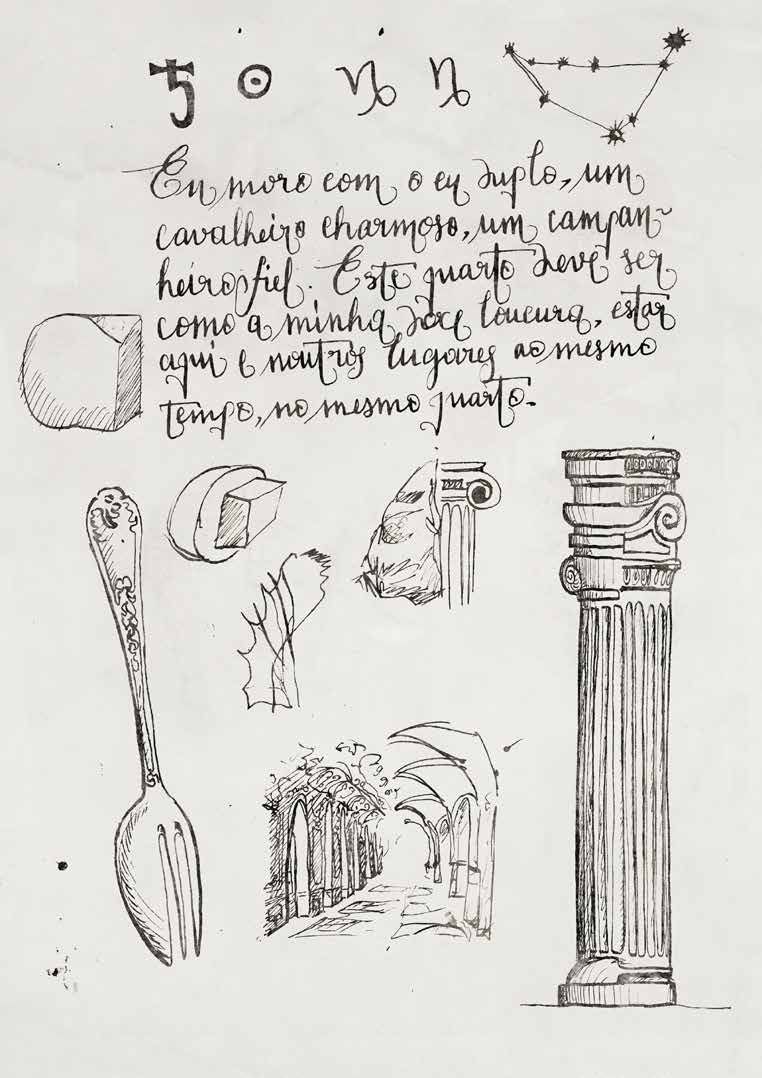 Eu moro com o eu duplo, um
cavalheiro charmoso, um campan-
heiro fiel. Este quarto deve ser
como a minha doce loucura, estar
aqui e noutros lugares ao mesmo
tempo, no mesmo quarto.